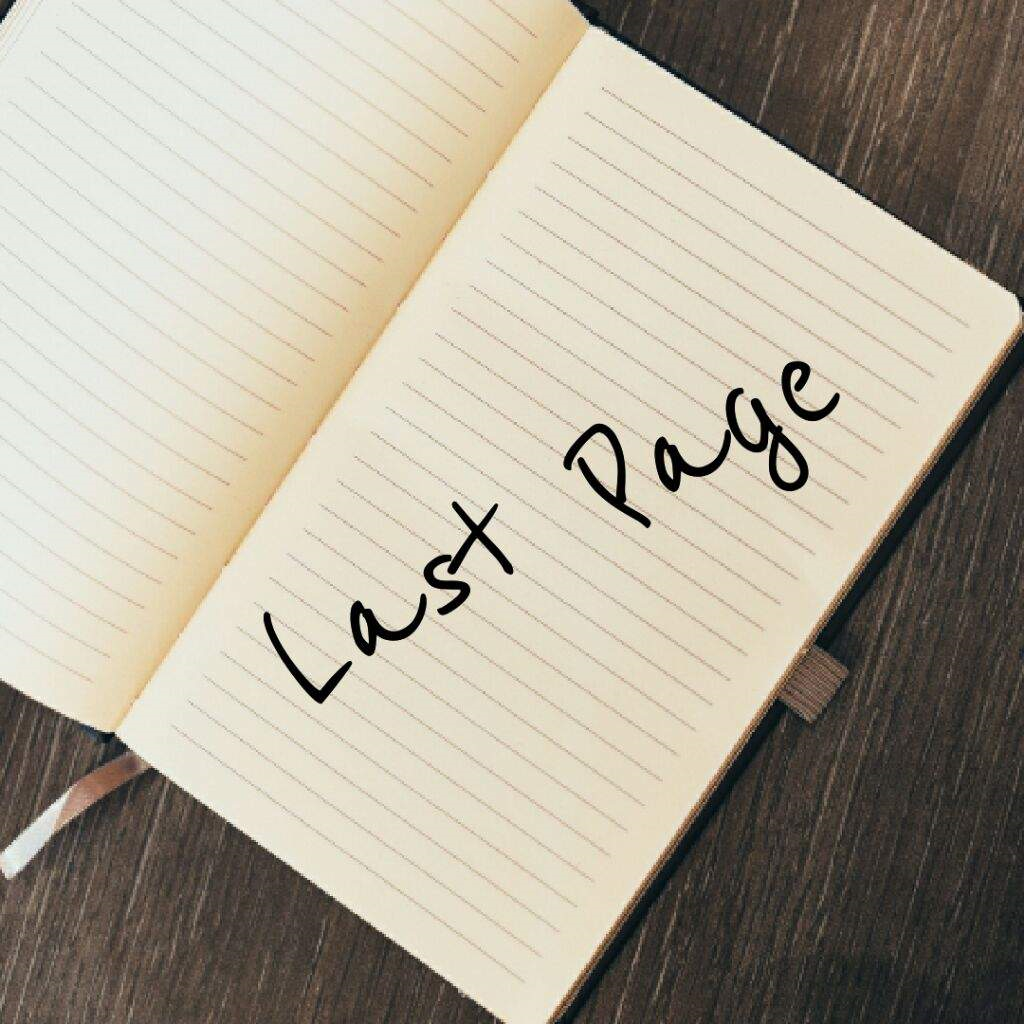 Last Page